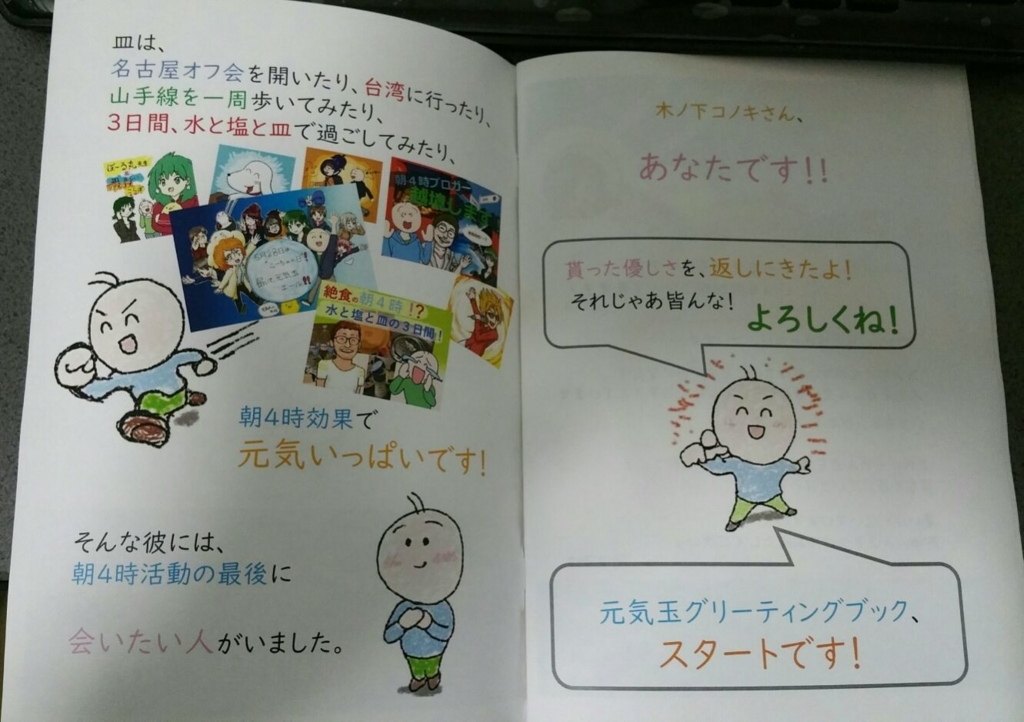 皿は、
名古屋オフ会を開いたり、台湾に行ったり、
山手線を一周歩いてみたり、
3日間、水と塩と皿で過ごしてみたり、
朝4時ブロガー
絶食の朝4時!?
水と塩と皿の3日間!
朝4時効果で
元気いっぱいです!
そんな彼には、
朝4時活動の最後に
会いたい人がいました。
木ノ下コノキさん、
あなたです!!
貰った優しさを、返しにきたよ!
それじゃあ皆んな!
よろしくね!
元気玉グリーティングブック、
スタートです!